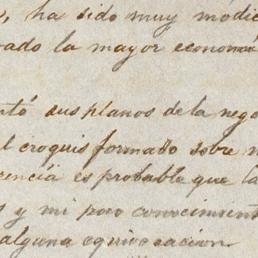 , ha sido muy módic
ado la mayor economí
ntó sus planos de la nego
l croquis formado sobre
rencia es probable que la
s y mi poco conocimient
alguna equivocacion.